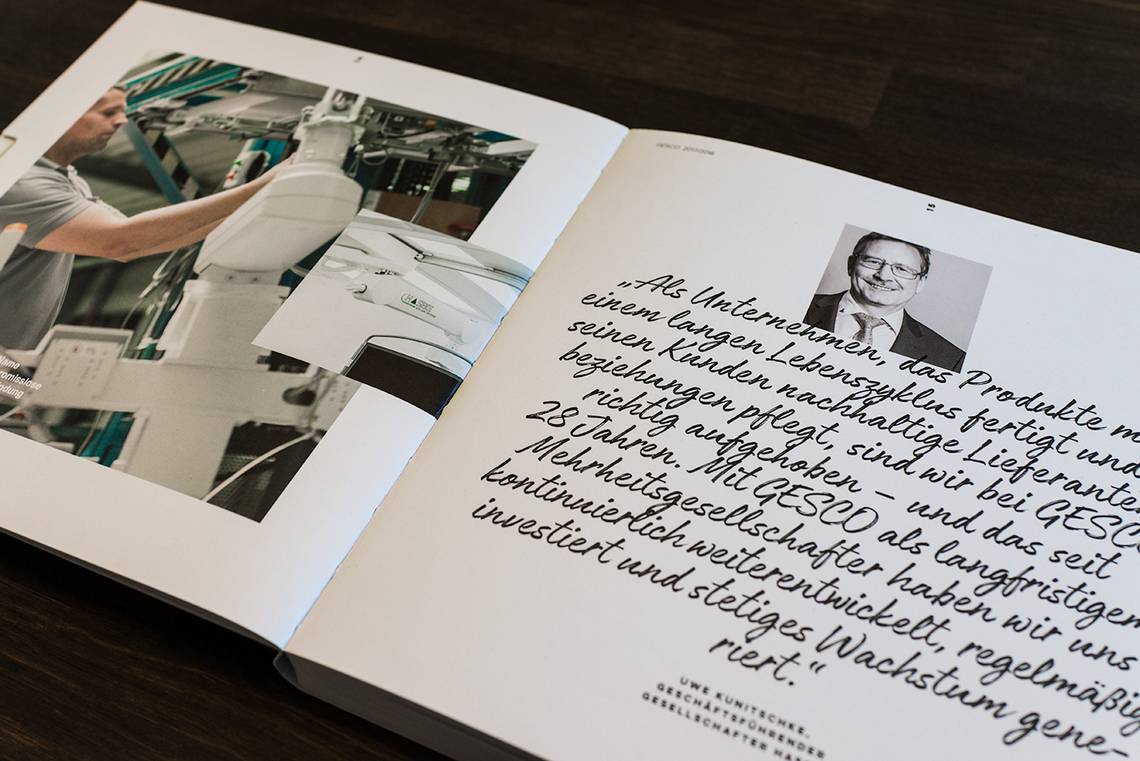 Name
romisslose
ndung
HASEKE
GESCO 2017/2018
15
„Als Unternehmen, das Produkte m
einem langen Lebenszyklus fertigt und
seinen Kunden nachhaltige Lieferanten
beziehungen pflegt, sind wir bei GESCO
richtig aufgehoben – und das seit
28 Jahren. Mit GESCO als langfristigem
Mehrheitsgesellschafter haben wir uns
kontinuierlich weiterentwickelt, regelmäßig
investiert und stetiges Wachstum gene-
riert.“
UWE KUNITSCHKE,
GESCHÄFTSFÜHRENDER
GESELLSCHAFTER HAS